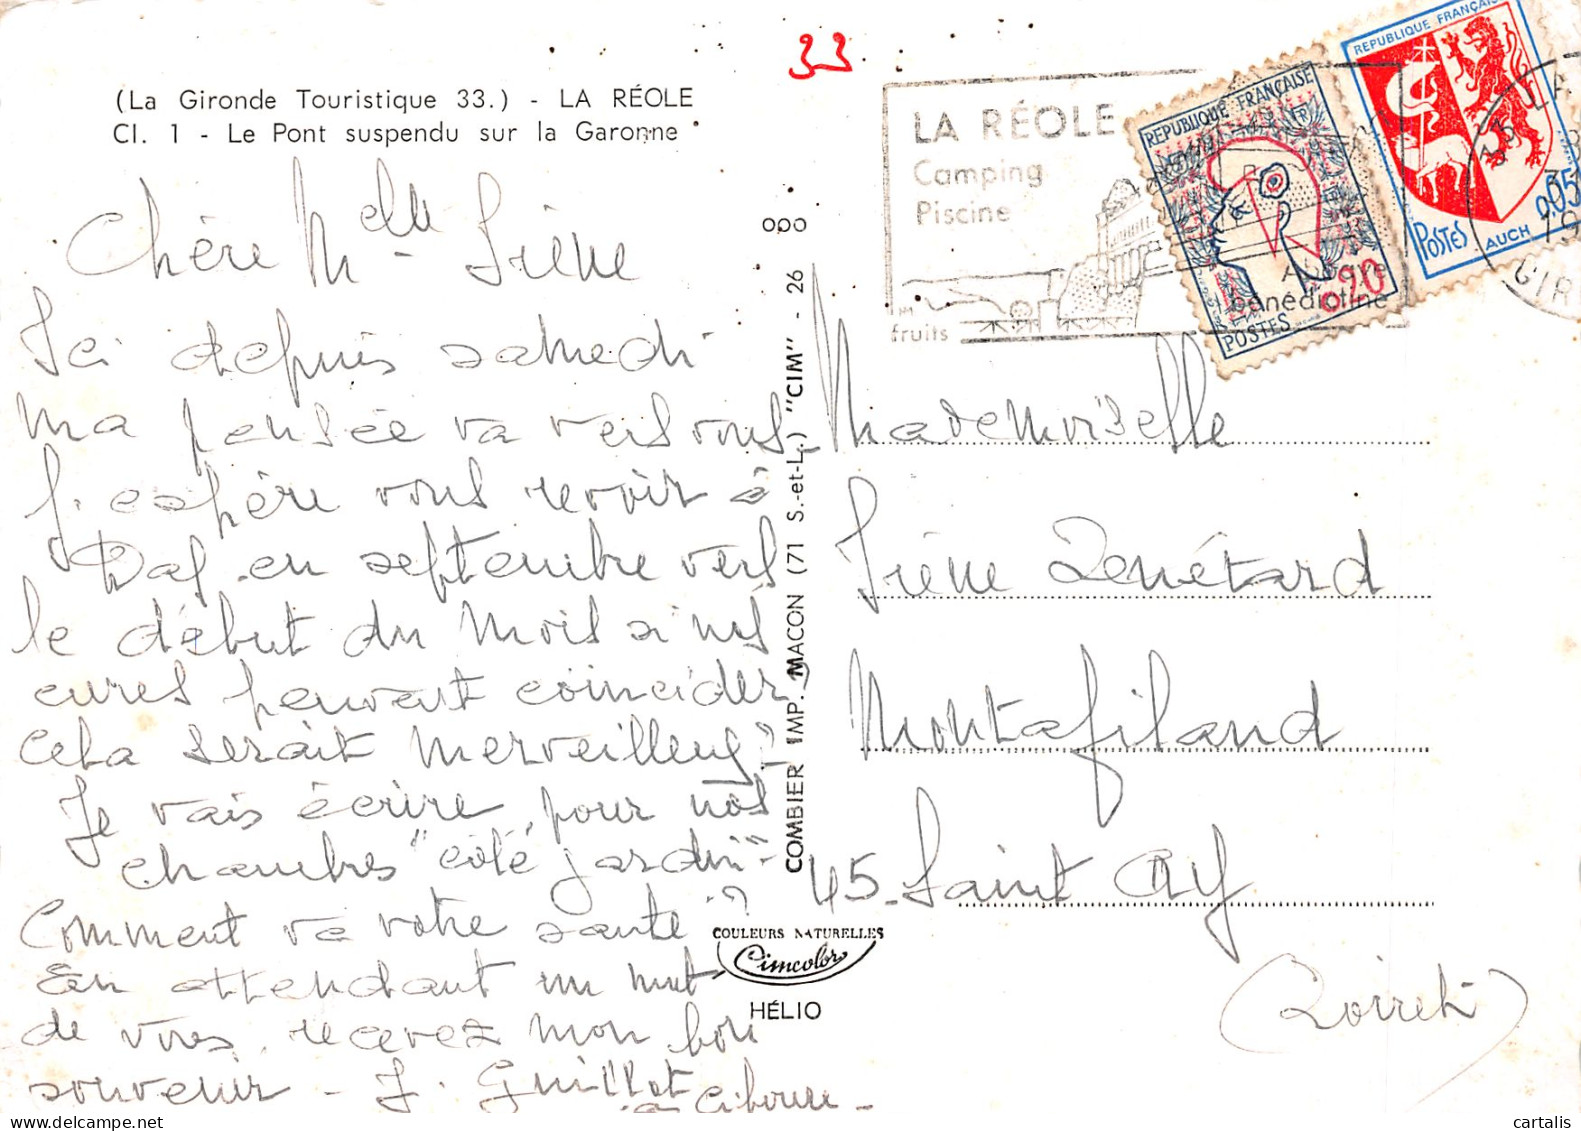 33
(La Gironde Touristique 33.) - LA RÉOLE
Cl. 1 - Le Pont suspendu sur la Garonne
Chère Melle Irène
Ici depuis samedi
ma pensée va vers vous
J'espère vous revoir à
Dax en septembre vers
le début du mois si nos
cures peuvent coïncider,
cela serait merveilleux
Je vais écrire pour nos
chambres "côté jardin" -
Comment va votre santé ?
En attendant un mot
de vous, recevez mon bon
souvenir - J. Guillot
à Ciboure -
COMBIER IMP. MACON (71 S.-et-L.) "CIM" - 26
COULEURS NATURELLES
Cimcolor
HÉLIO
LA RÉOLE
Camping
Piscine
fruits
Abbaye
bénédictine
REPUBLIQUE FRANÇAISE
0,20
POSTES
REPUBLIQUE FRANÇAISE
0,05
POSTES
AUCH
33 LA
GIR
Mademoiselle
Irène Penétard
Montafiland
45 - Saint Ay
(Loiret)
cartalis
delcampe.net